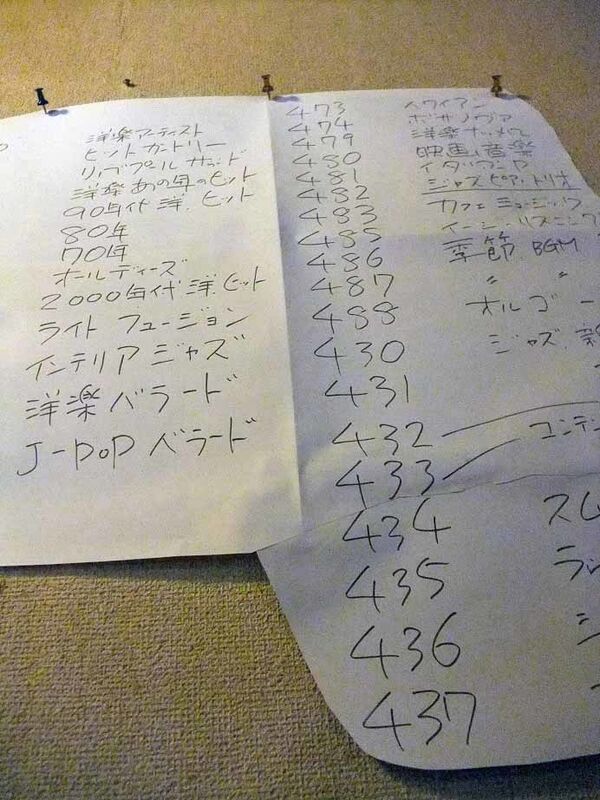 洋楽アーティスト
ヒットカントリー
リバプールサウンド
洋楽あの年のヒット
90年代洋.ヒット
80年
70年
オールディーズ
2000年代洋.ヒット
ライト フュージョン
インテリアジャズ
洋楽バラード
J-POP バラード
473 ハワイアン
474 ボサノヴァ
479 洋楽
480 映画音楽
481 イタリアン
482 ジャズピアノトリオ
483 カフェミュージック
485 イージーリスニング
486 季節.BGM
487 〃 〃
488 オルゴー
430 ジャズ.
431
432
433 コンテン
434 スム
435 ラ
436
437